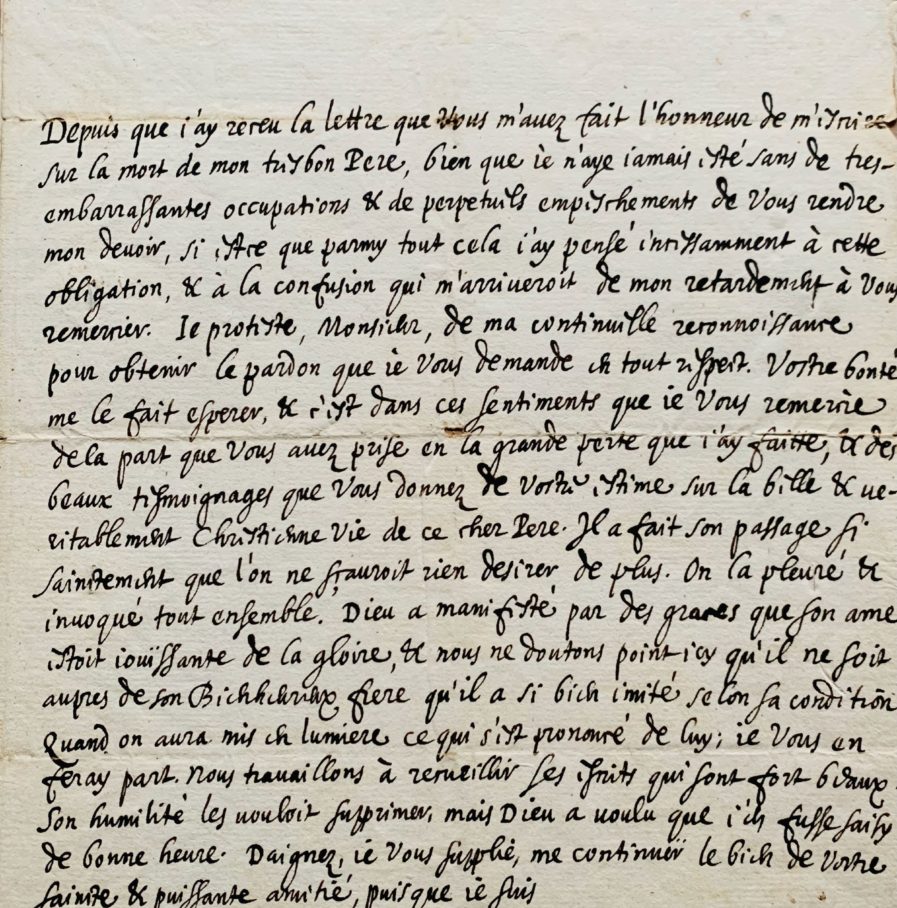 Depuis que i'ay receu la lettre que Vous m'auez fait l'honneur de m'escrire
sur la mort de mon tresbon Pere, bien que ie n'aye iamais esté sans de tres-
embarrassantes occupations & de perpetuels empeschements de Vous rendre
mon devoir, si estce que parmy tout cela i'ay pensé incessamment à cette
obligation, & à la confusion qui m'arriueroit de mon retardement à Vous
remercier. Ie proteste, Monsieur, de ma continuelle reconnoissance
pour obtenir le pardon que ie Vous demande en tout respect. Vostre bonté
me le fait esperer, & c'est dans ces sentiments que ie Vous remercie
dela part que Vous auez prise en la grande perte que i'ay faitte, & des
beaux tesmoignages que Vous donnez de Vostre estime sur la belle & ve-
ritablement Chrestienne Vie de ce cher Pere. Il a fait son passage si
sainctement que l'on ne sçauroit rien desirer de plus. On la pleuré &
inuoqué tout ensemble. Dieu a manifesté par des graces que son ame
estoit iouïssante de la gloire, & nous ne doutons point icy qu'il ne soit
aupres de son Bienheureux frere qu'il a si bien imité selon sa condition
Quand on aura mis en lumiere ce qui s'est prononcé de luy; ie Vous en
feray part. Nous trauaillons à recueillir ses escrits qui sont fort beaux.
Son humilité les vouloit supprimer, mais Dieu a voulu que i'en fusse saisy
de bonne heure. Daignez, ie Vous supplie, me continuer le bien de Vostre
saincte & puissante amitié, puisque ie suis